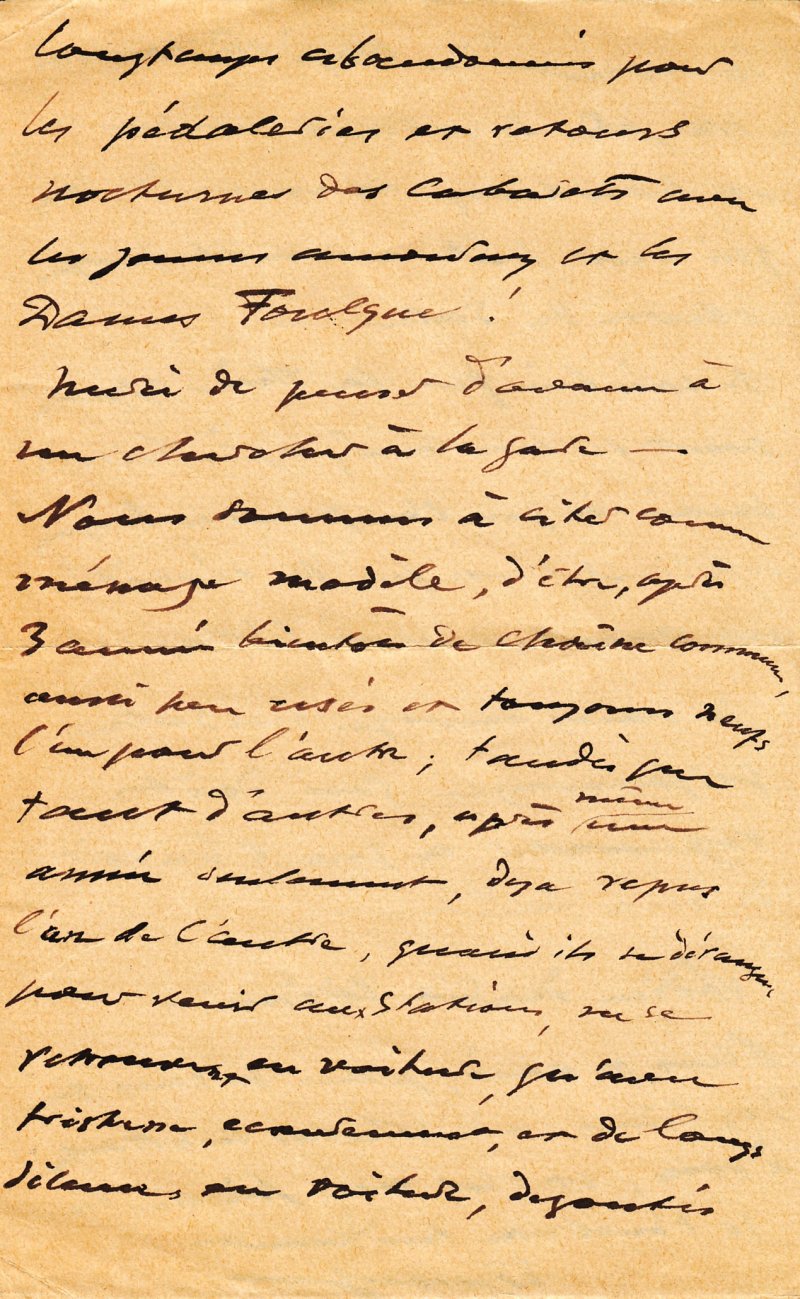 longtemps abandonnés pour
les pédaleries et retours
nocturnes des Cabarets avec
les jeunes amoureux et les
Dames Foulque !
Merci de penser d'avance à
me chercher à la gare —
Nous sommes à citer comme
ménage modèle, d'être, après
3 années bientôt de chaîne commune,
aussi peu usés et toujours neufs
l'un pour l'autre ; tandis que
tant d'autres, après même une
année seulement, déja repus
l'un de l'autre, quand ils se dérangent
pour venir aux Stations, ne se
retrouvent en voiture, qu'avec
tristesse, et de longs
silences en voiture, dégoutés